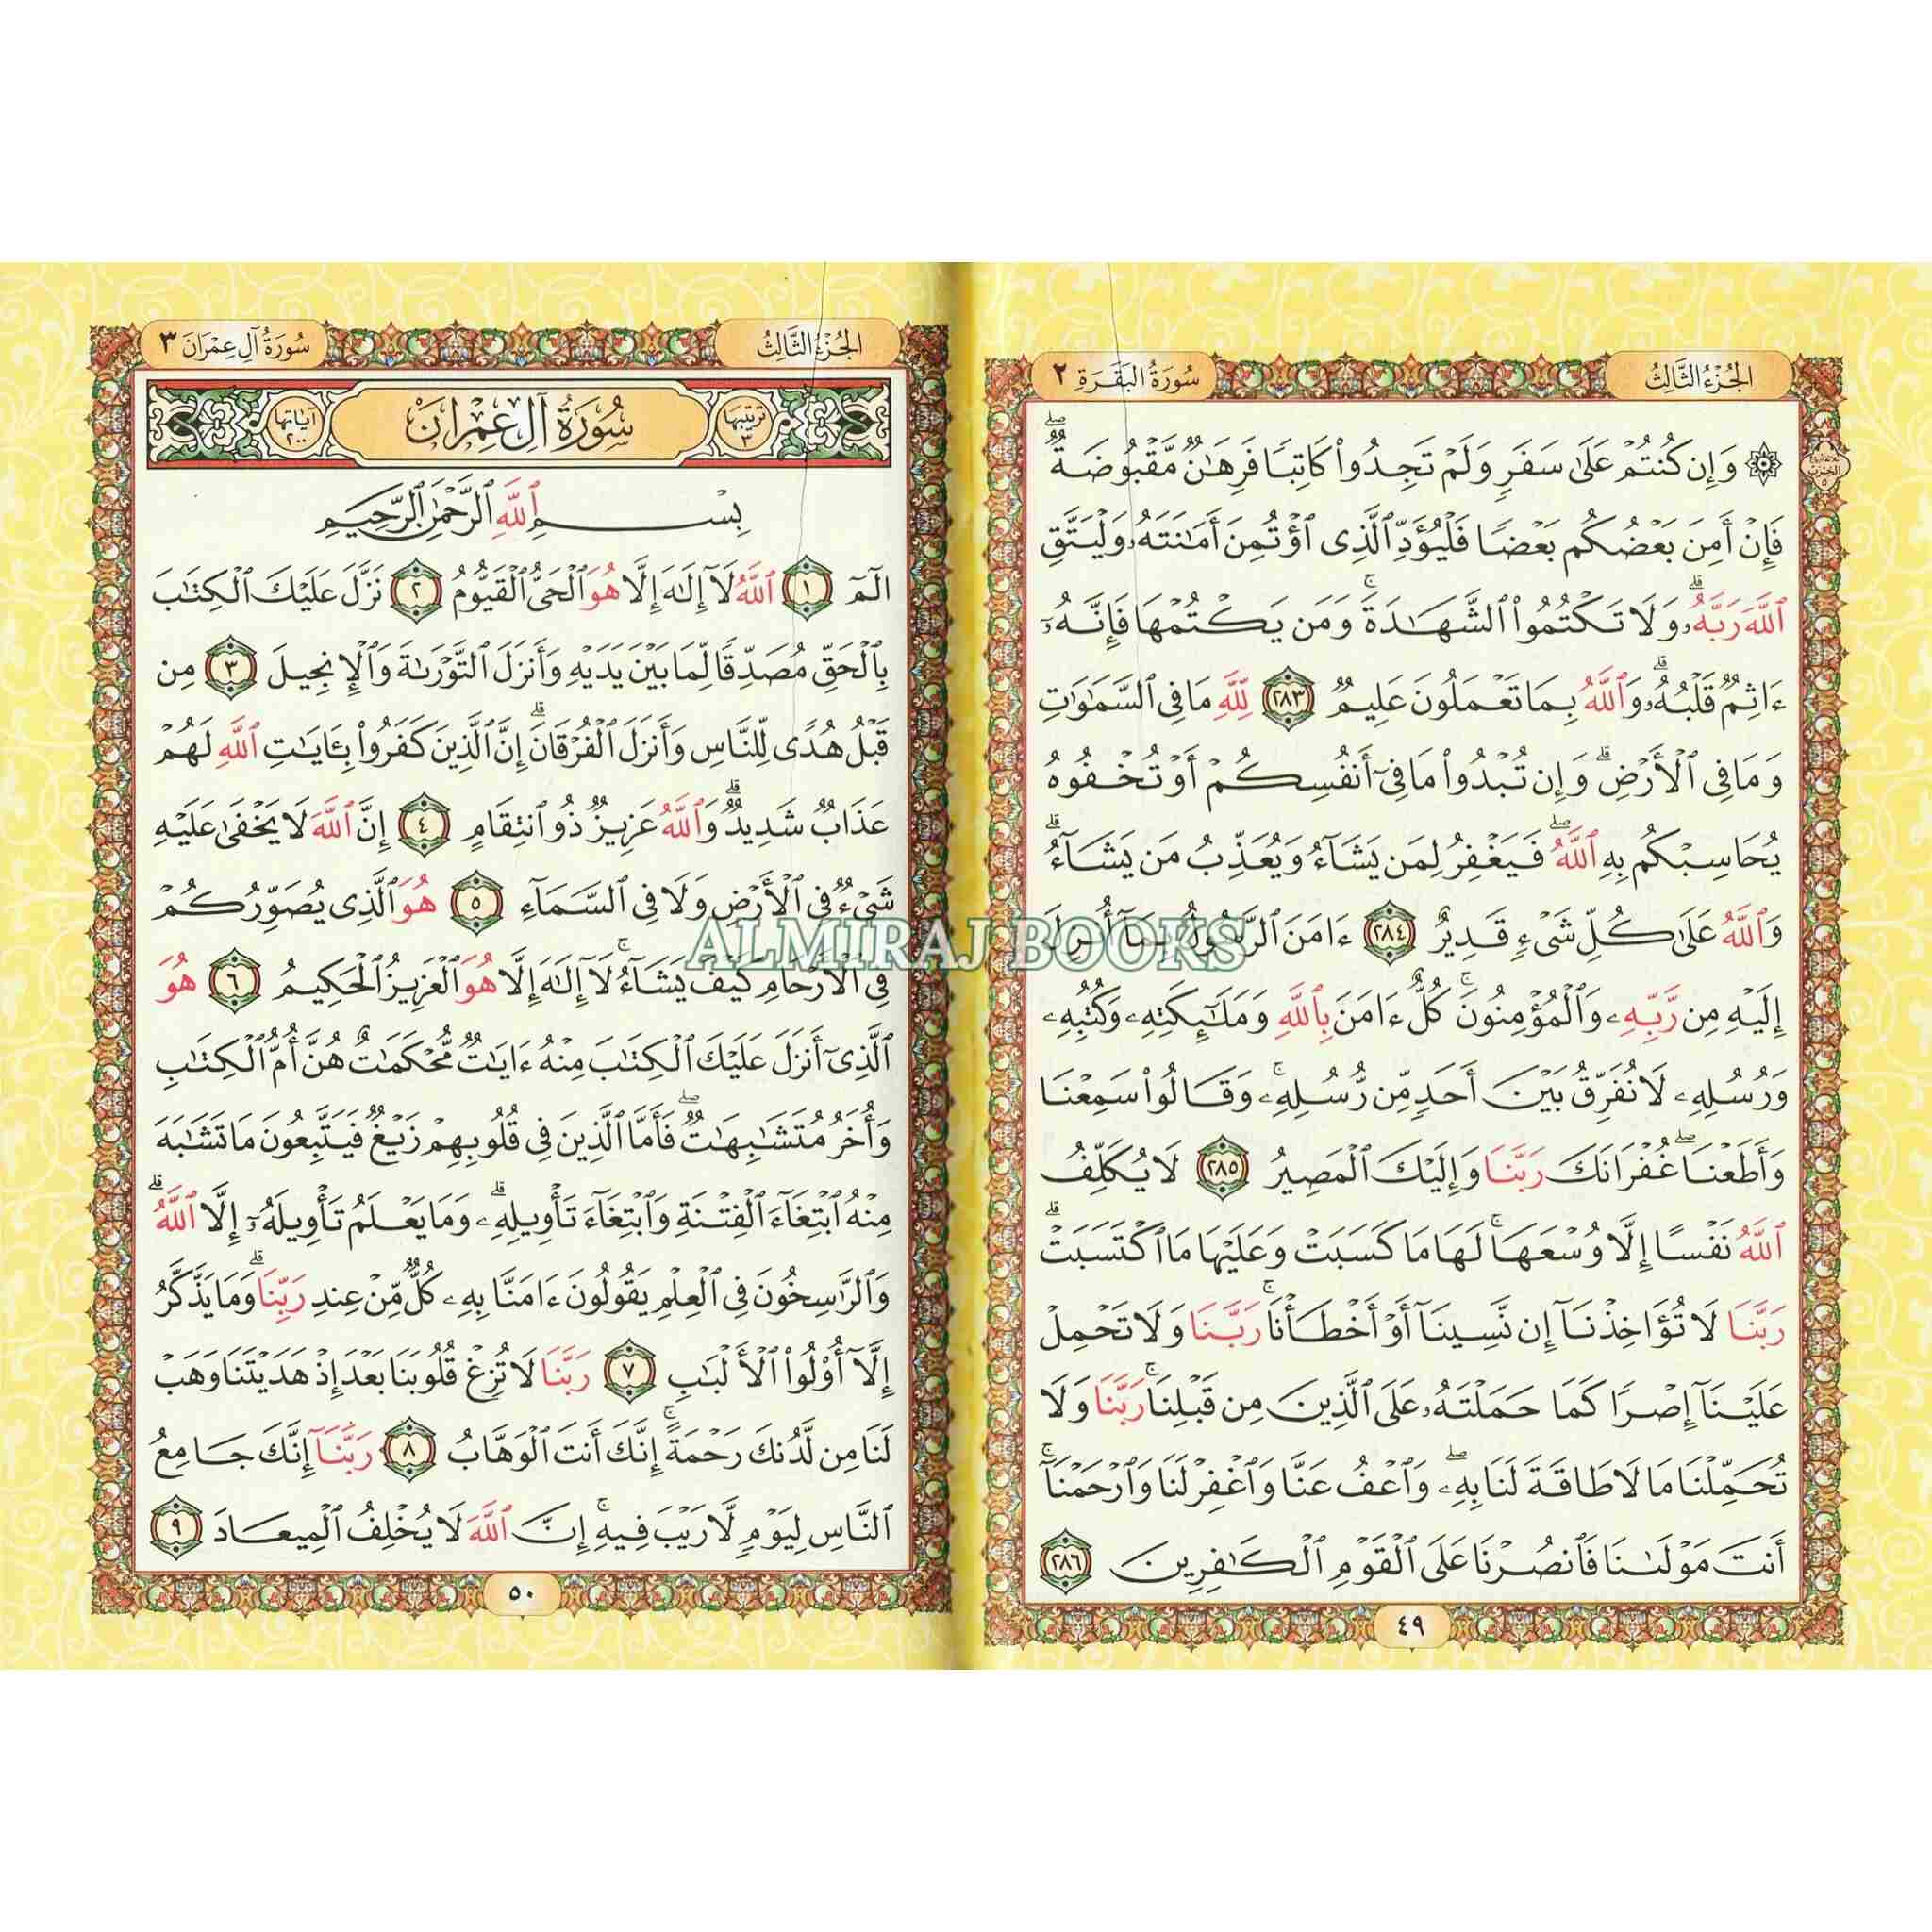 الجُزْءُ الثَّالِثُ
سُورَةُ البَقَرَةِ ٢
۞ وَإِن كُنتُمْ عَلَىٰ سَفَرٍ وَلَمْ تَجِدُوا۟ كَاتِبًا فَرِهَـٰنٌ مَّقْبُوضَةٌ ۖ
فَإِنْ أَمِنَ بَعْضُكُم بَعْضًا فَلْيُؤَدِّ ٱلَّذِى ٱؤْتُمِنَ أَمَـٰنَتَهُۥ وَلْيَتَّقِ
ٱللَّهَ رَبَّهُۥ ۗ وَلَا تَكْتُمُوا۟ ٱلشَّهَـٰدَةَ ۚ وَمَن يَكْتُمْهَا فَإِنَّهُۥٓ
ءَاثِمٌ قَلْبُهُۥ ۗ وَٱللَّهُ بِمَا تَعْمَلُونَ عَلِيمٌ ٢٨٣ لِّلَّهِ مَا فِى ٱلسَّمَـٰوَٰتِ
وَمَا فِى ٱلْأَرْضِ ۗ وَإِن تُبْدُوا۟ مَا فِىٓ أَنفُسِكُمْ أَوْ تُخْفُوهُ
يُحَاسِبْكُم بِهِ ٱللَّهُ ۖ فَيَغْفِرُ لِمَن يَشَآءُ وَيُعَذِّبُ مَن يَشَآءُ ۗ
وَٱللَّهُ عَلَىٰ كُلِّ شَىْءٍ قَدِيرٌ ٢٨٤ ءَامَنَ ٱلرَّسُولُ بِمَآ أُنزِلَ
إِلَيْهِ مِن رَّبِّهِۦ وَٱلْمُؤْمِنُونَ ۚ كُلٌّ ءَامَنَ بِٱللَّهِ وَمَلَـٰٓئِكَتِهِۦ وَكُتُبِهِۦ
وَرُسُلِهِۦ لَا نُفَرِّقُ بَيْنَ أَحَدٍ مِّن رُّسُلِهِۦ ۚ وَقَالُوا۟ سَمِعْنَا
وَأَطَعْنَا ۖ غُفْرَانَكَ رَبَّنَا وَإِلَيْكَ ٱلْمَصِيرُ ٢٨٥ لَا يُكَلِّفُ
ٱللَّهُ نَفْسًا إِلَّا وُسْعَهَا ۚ لَهَا مَا كَسَبَتْ وَعَلَيْهَا مَا ٱكْتَسَبَتْ ۗ
رَبَّنَا لَا تُؤَاخِذْنَآ إِن نَّسِينَآ أَوْ أَخْطَأْنَا ۚ رَبَّنَا وَلَا تَحْمِلْ
عَلَيْنَآ إِصْرًا كَمَا حَمَلْتَهُۥ عَلَى ٱلَّذِينَ مِن قَبْلِنَا ۚ رَبَّنَا وَلَا
تُحَمِّلْنَا مَا لَا طَاقَةَ لَنَا بِهِۦ ۖ وَٱعْفُ عَنَّا وَٱغْفِرْ لَنَا وَٱرْحَمْنَآ ۚ
أَنتَ مَوْلَىٰنَا فَٱنصُرْنَا عَلَى ٱلْقَوْمِ ٱلْكَـٰفِرِينَ ٢٨٦
٤٩
الجُزْءُ الثَّالِثُ
سُورَةُ آلِ عِمْرَانَ ٣
ترتيبها ٣
سُورَةُ آلِ عِمْرَانَ
آياتها ٢٠٠
بِسْمِ ٱللَّهِ ٱلرَّحْمَـٰنِ ٱلرَّحِيمِ
الٓمٓ ١ ٱللَّهُ لَآ إِلَـٰهَ إِلَّا هُوَ ٱلْحَىُّ ٱلْقَيُّومُ ٢ نَزَّلَ عَلَيْكَ ٱلْكِتَـٰبَ
بِٱلْحَقِّ مُصَدِّقًا لِّمَا بَيْنَ يَدَيْهِ وَأَنزَلَ ٱلتَّوْرَىٰةَ وَٱلْإِنجِيلَ ٣ مِن
قَبْلُ هُدًى لِّلنَّاسِ وَأَنزَلَ ٱلْفُرْقَانَ ۗ إِنَّ ٱلَّذِينَ كَفَرُوا۟ بِـَٔايَـٰتِ ٱللَّهِ لَهُمْ
عَذَابٌ شَدِيدٌ ۗ وَٱللَّهُ عَزِيزٌ ذُو ٱنتِقَامٍ ٤ إِنَّ ٱللَّهَ لَا يَخْفَىٰ عَلَيْهِ
شَىْءٌ فِى ٱلْأَرْضِ وَلَا فِى ٱلسَّمَآءِ ٥ هُوَ ٱلَّذِى يُصَوِّرُكُمْ
فِى ٱلْأَرْحَامِ كَيْفَ يَشَآءُ ۚ لَآ إِلَـٰهَ إِلَّا هُوَ ٱلْعَزِيزُ ٱلْحَكِيمُ ٦ هُوَ
ٱلَّذِىٓ أَنزَلَ عَلَيْكَ ٱلْكِتَـٰبَ مِنْهُ ءَايَـٰتٌ مُّحْكَمَـٰتٌ هُنَّ أُمُّ ٱلْكِتَـٰبِ
وَأُخَرُ مُتَشَـٰبِهَـٰتٌ ۖ فَأَمَّا ٱلَّذِينَ فِى قُلُوبِهِمْ زَيْغٌ فَيَتَّبِعُونَ مَا تَشَـٰبَهَ
مِنْهُ ٱبْتِغَآءَ ٱلْفِتْنَةِ وَٱبْتِغَآءَ تَأْوِيلِهِۦ ۗ وَمَا يَعْلَمُ تَأْوِيلَهُۥٓ إِلَّا ٱللَّهُ ۗ
وَٱلرَّٰسِخُونَ فِى ٱلْعِلْمِ يَقُولُونَ ءَامَنَّا بِهِۦ كُلٌّ مِّنْ عِندِ رَبِّنَا ۗ وَمَا يَذَّكَّرُ
إِلَّآ أُو۟لُوا۟ ٱلْأَلْبَـٰبِ ٧ رَبَّنَا لَا تُزِغْ قُلُوبَنَا بَعْدَ إِذْ هَدَيْتَنَا وَهَبْ
لَنَا مِن لَّدُنكَ رَحْمَةً ۚ إِنَّكَ أَنتَ ٱلْوَهَّابُ ٨ رَبَّنَآ إِنَّكَ جَامِعُ
ٱلنَّاسِ لِيَوْمٍ لَّا رَيْبَ فِيهِ ۚ إِنَّ ٱللَّهَ لَا يُخْلِفُ ٱلْمِيعَادَ ٩
٥٠
ALMIRAJ BOOKS